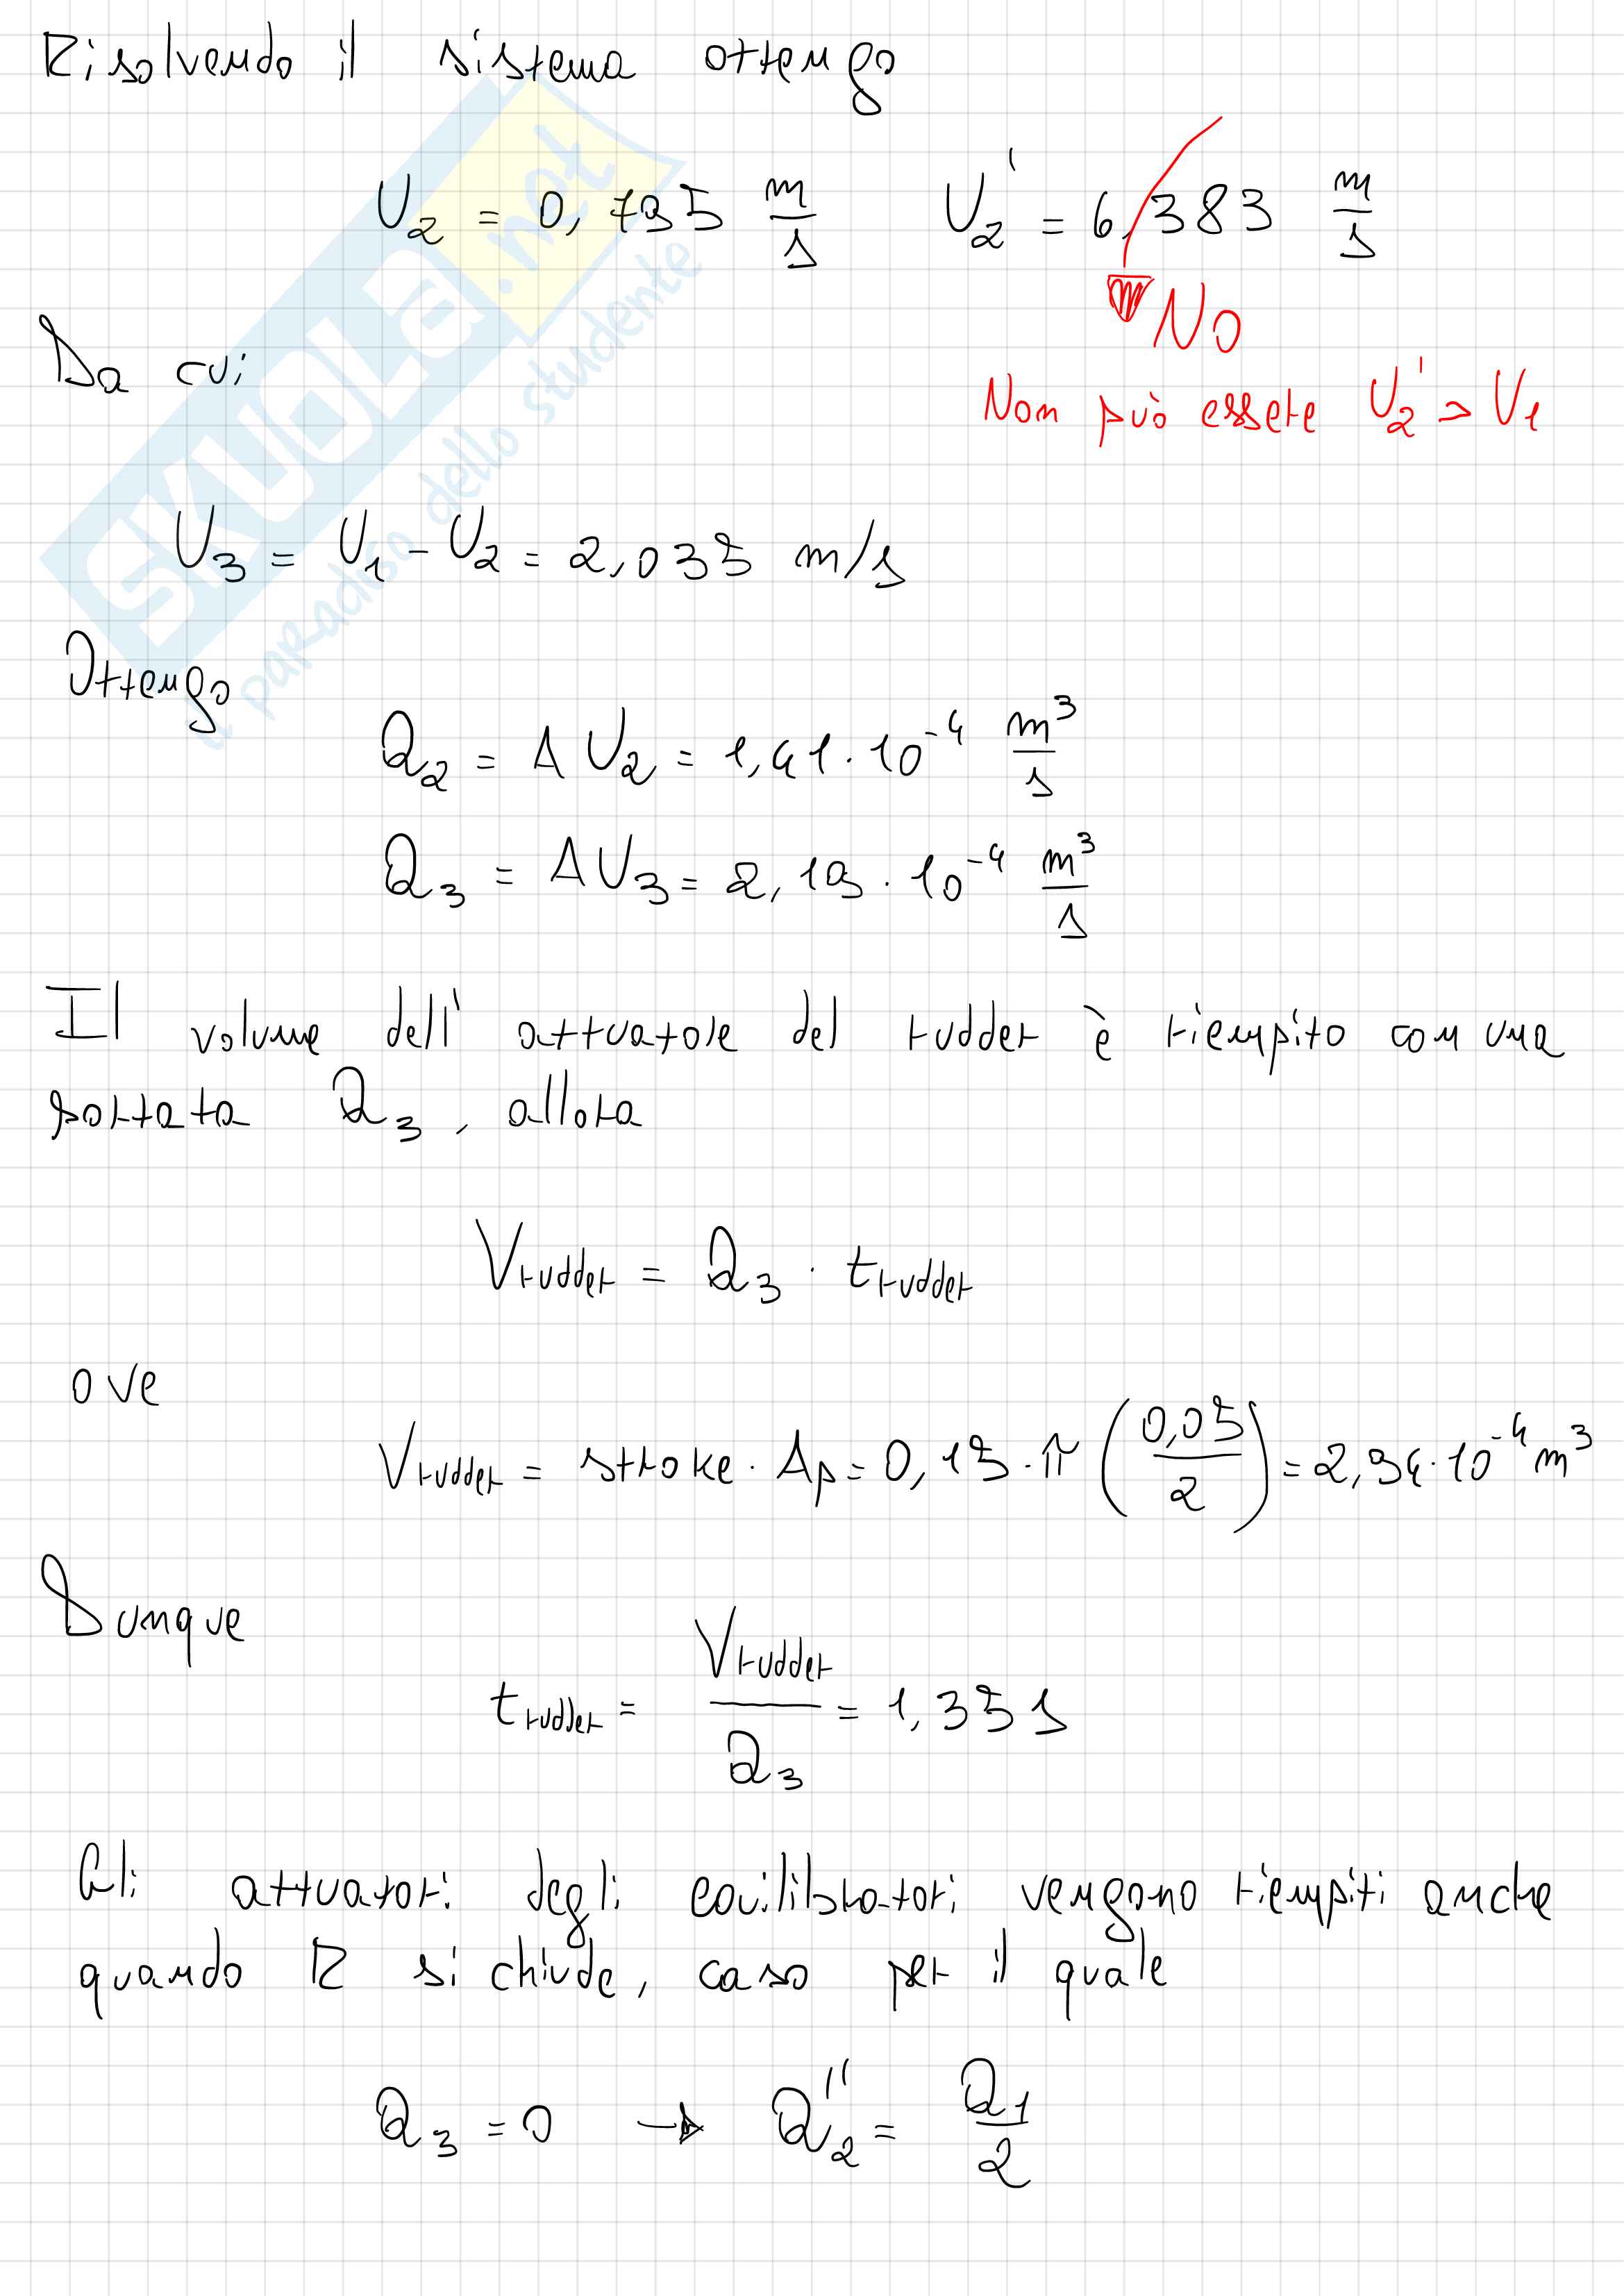 Risolvendo il sistema ottengo
U₂ = 0,795 m/s    U₂' = 6,383 m/s
NO
Da cui
Non può essere U₂' > U₁
U₃ = U₁ - U₂ = 2,035 m/s
Ottengo
Q₂ = A U₂ = 1,41 · 10⁻⁴ m³/s
Q₃ = A U₃ = 2,19 · 10⁻⁴ m³/s
Il volume dell' attuatore del rudder è riempito con una
portata Q₃, allora
Vrudder = Q₃ · trudder
ove
Vrudder = stroke · Ap = 0,15 · π (0,05/2) = 2,94 · 10⁻⁴ m³
Dunque
trudder = Vrudder/Q₃ = 1,35 s
Gli attuatori degli equilibratori vengono riempiti anche
quando R si chiude, caso per il quale
Q₃ = 0 → Q₂'' = Q₁/2
SKUOLA.net
il paradiso dello studente